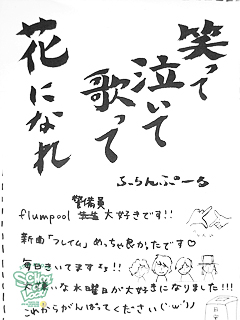 笑って
泣いて
歌って
花になれ
ふらんぷーる
警備員
flumpool 先生 大好きです!!
新曲「フレイム」めっちゃ良かったです♡
毎日きいてますよ!!
な水曜日が大好きになりました!!!
これからがんばってください(´ω`)ノ